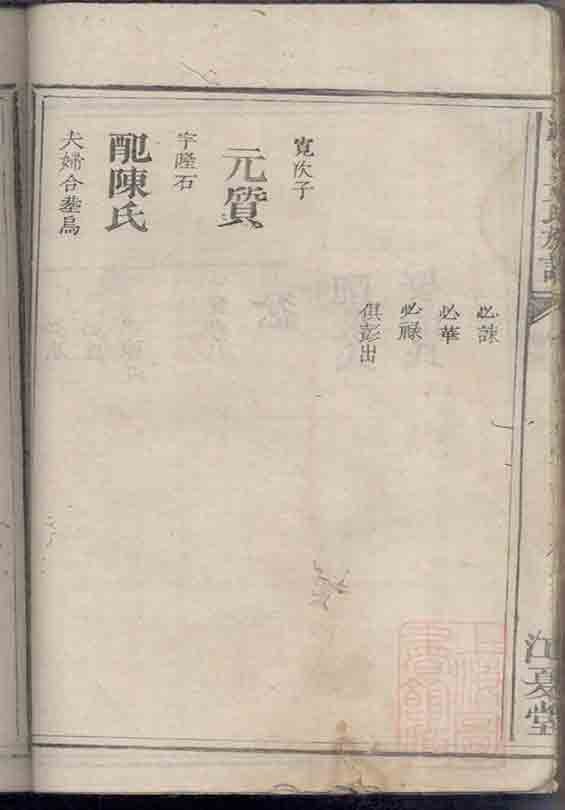 必誄
必華
必祿
俱彭出
寬次子
元質
字隆石
配陳氏
夫婦合墓烏
氏族譜
江夏堂